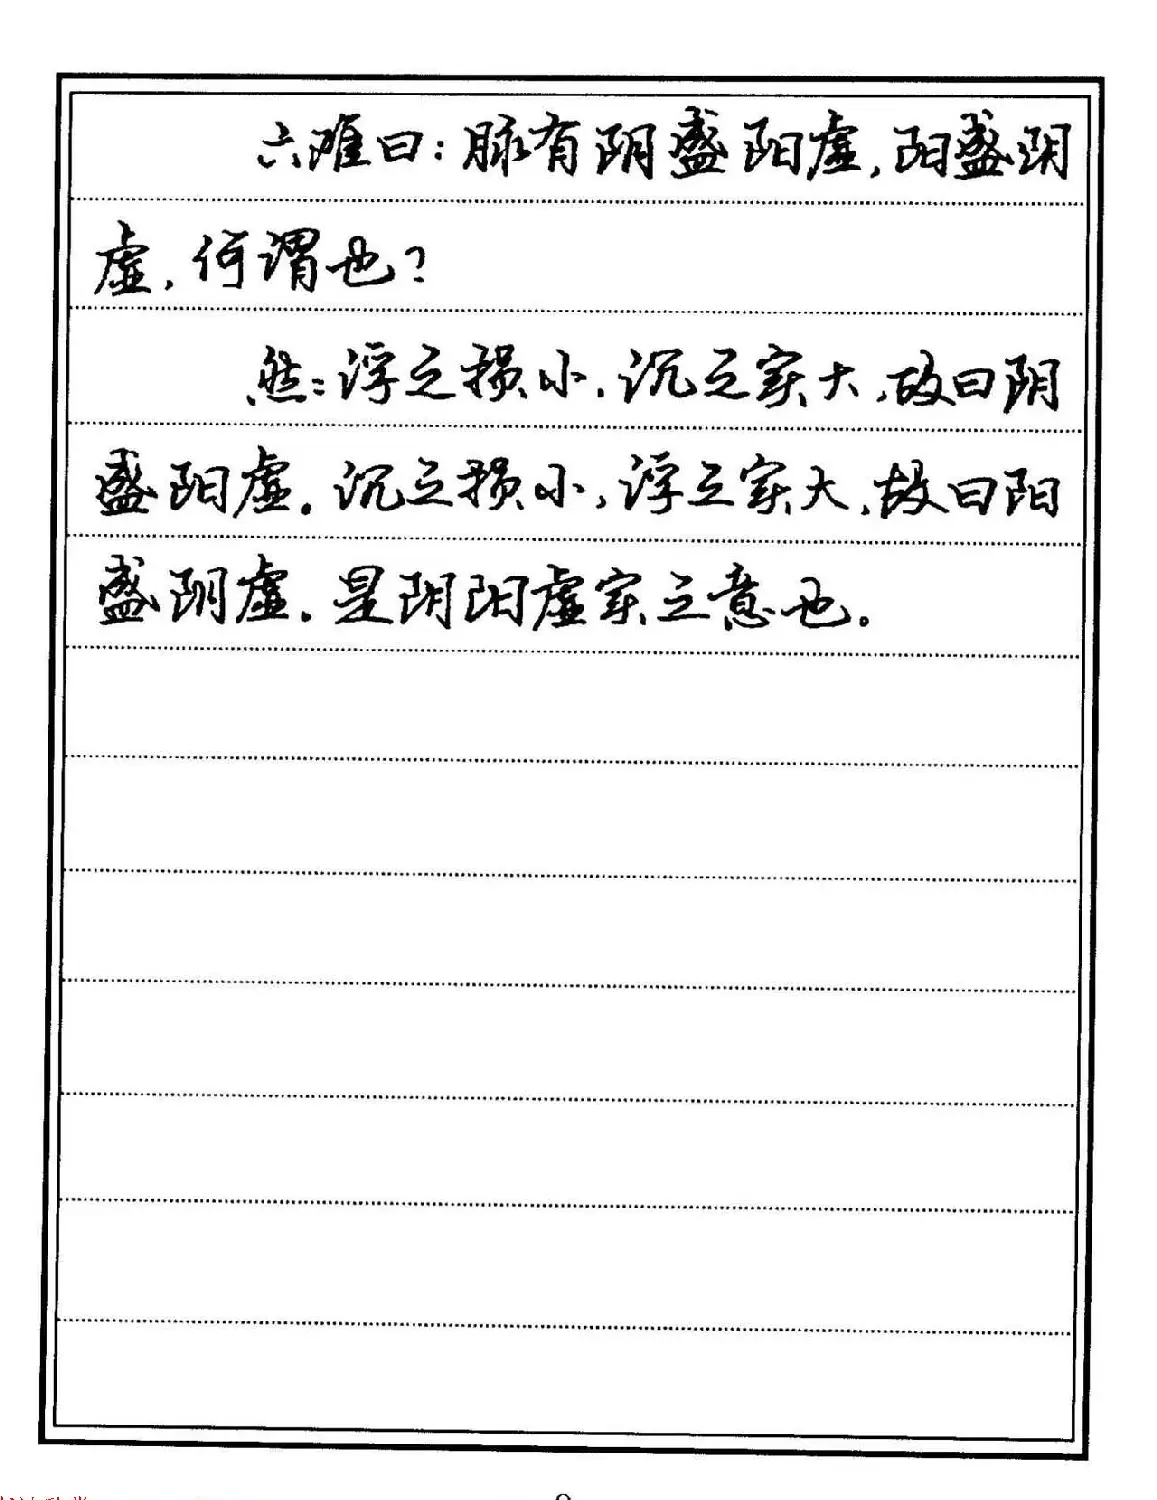 六难曰：脉有阴盛阳虚，阳盛阴
虚，何谓也？
然：浮之损小，沉之实大，故曰阴
盛阳虚。沉之损小，浮之实大，故曰阳
盛阴虚。是阴阳虚实之意也。